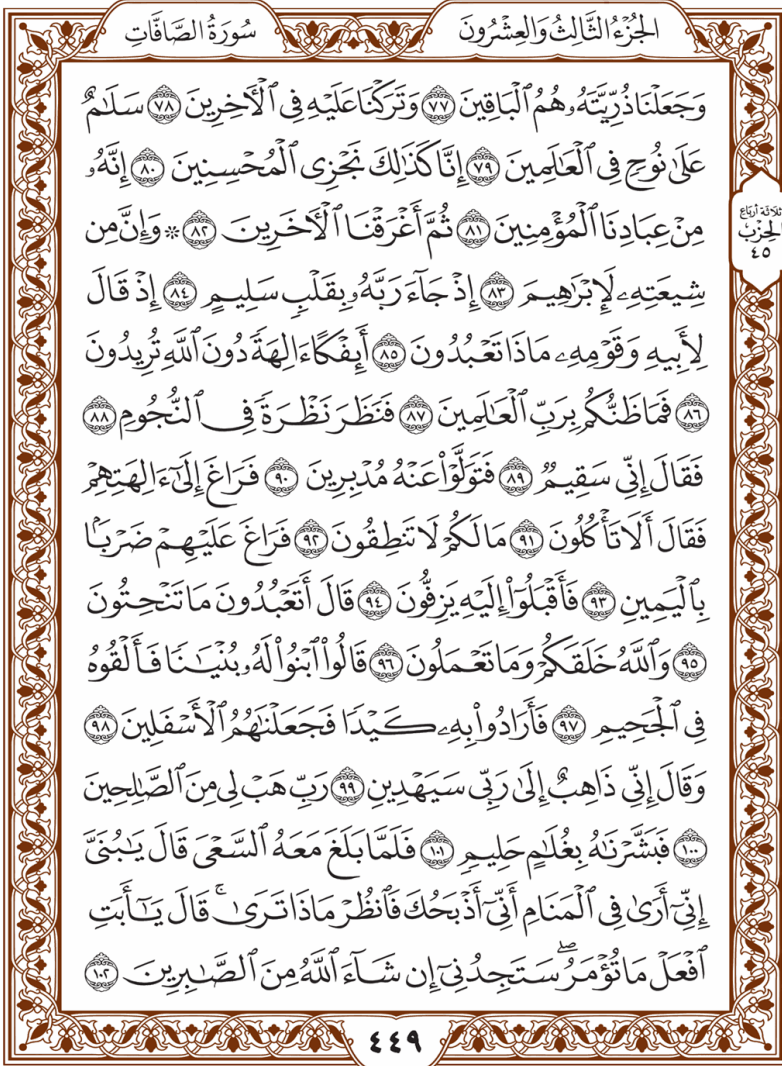 الجُزْءُ الثَّالِثُ وَالعِشْرُونَ
سُورَةُ الصَّافَّاتِ
وَجَعَلْنَا ذُرِّيَّتَهُۥ هُمُ ٱلْبَاقِينَ ٧٧ وَتَرَكْنَا عَلَيْهِ فِى ٱلْـَٔاخِرِينَ ٧٨ سَلَـٰمٌ
عَلَىٰ نُوحٍ فِى ٱلْعَـٰلَمِينَ ٧٩ إِنَّا كَذَٰلِكَ نَجْزِى ٱلْمُحْسِنِينَ ٨٠ إِنَّهُۥ
مِنْ عِبَادِنَا ٱلْمُؤْمِنِينَ ٨١ ثُمَّ أَغْرَقْنَا ٱلْـَٔاخَرِينَ ٨٢ ۞ وَإِنَّ مِن
ثلاثة أرباع
الحزب
٤٥
شِيعَتِهِۦ لَإِبْرَٰهِيمَ ٨٣ إِذْ جَآءَ رَبَّهُۥ بِقَلْبٍ سَلِيمٍ ٨٤ إِذْ قَالَ
لِأَبِيهِ وَقَوْمِهِۦ مَاذَا تَعْبُدُونَ ٨٥ أَئِفْكًا ءَالِهَةً دُونَ ٱللَّهِ تُرِيدُونَ
٨٦ فَمَا ظَنُّكُم بِرَبِّ ٱلْعَـٰلَمِينَ ٨٧ فَنَظَرَ نَظْرَةً فِى ٱلنُّجُومِ ٨٨
فَقَالَ إِنِّى سَقِيمٌ ٨٩ فَتَوَلَّوْا۟ عَنْهُ مُدْبِرِينَ ٩٠ فَرَاغَ إِلَىٰٓ ءَالِهَتِهِمْ
فَقَالَ أَلَا تَأْكُلُونَ ٩١ مَا لَكُمْ لَا تَنطِقُونَ ٩٢ فَرَاغَ عَلَيْهِمْ ضَرْبًۢا
بِٱلْيَمِينِ ٩٣ فَأَقْبَلُوٓا۟ إِلَيْهِ يَزِفُّونَ ٩٤ قَالَ أَتَعْبُدُونَ مَا تَنْحِتُونَ
٩٥ وَٱللَّهُ خَلَقَكُمْ وَمَا تَعْمَلُونَ ٩٦ قَالُوا۟ ٱبْنُوا۟ لَهُۥ بُنْيَـٰنًا فَأَلْقُوهُ
فِى ٱلْجَحِيمِ ٩٧ فَأَرَادُوا۟ بِهِۦ كَيْدًا فَجَعَلْنَـٰهُمُ ٱلْأَسْفَلِينَ ٩٨
وَقَالَ إِنِّى ذَاهِبٌ إِلَىٰ رَبِّى سَيَهْدِينِ ٩٩ رَبِّ هَبْ لِى مِنَ ٱلصَّـٰلِحِينَ
١٠٠ فَبَشَّرْنَـٰهُ بِغُلَـٰمٍ حَلِيمٍ ١٠١ فَلَمَّا بَلَغَ مَعَهُ ٱلسَّعْىَ قَالَ يَـٰبُنَىَّ
إِنِّىٓ أَرَىٰ فِى ٱلْمَنَامِ أَنِّىٓ أَذْبَحُكَ فَٱنظُرْ مَاذَا تَرَىٰ ۚ قَالَ يَـٰٓأَبَتِ
ٱفْعَلْ مَا تُؤْمَرُ ۖ سَتَجِدُنِىٓ إِن شَآءَ ٱللَّهُ مِنَ ٱلصَّـٰبِرِينَ ١٠٢
٤٤٩